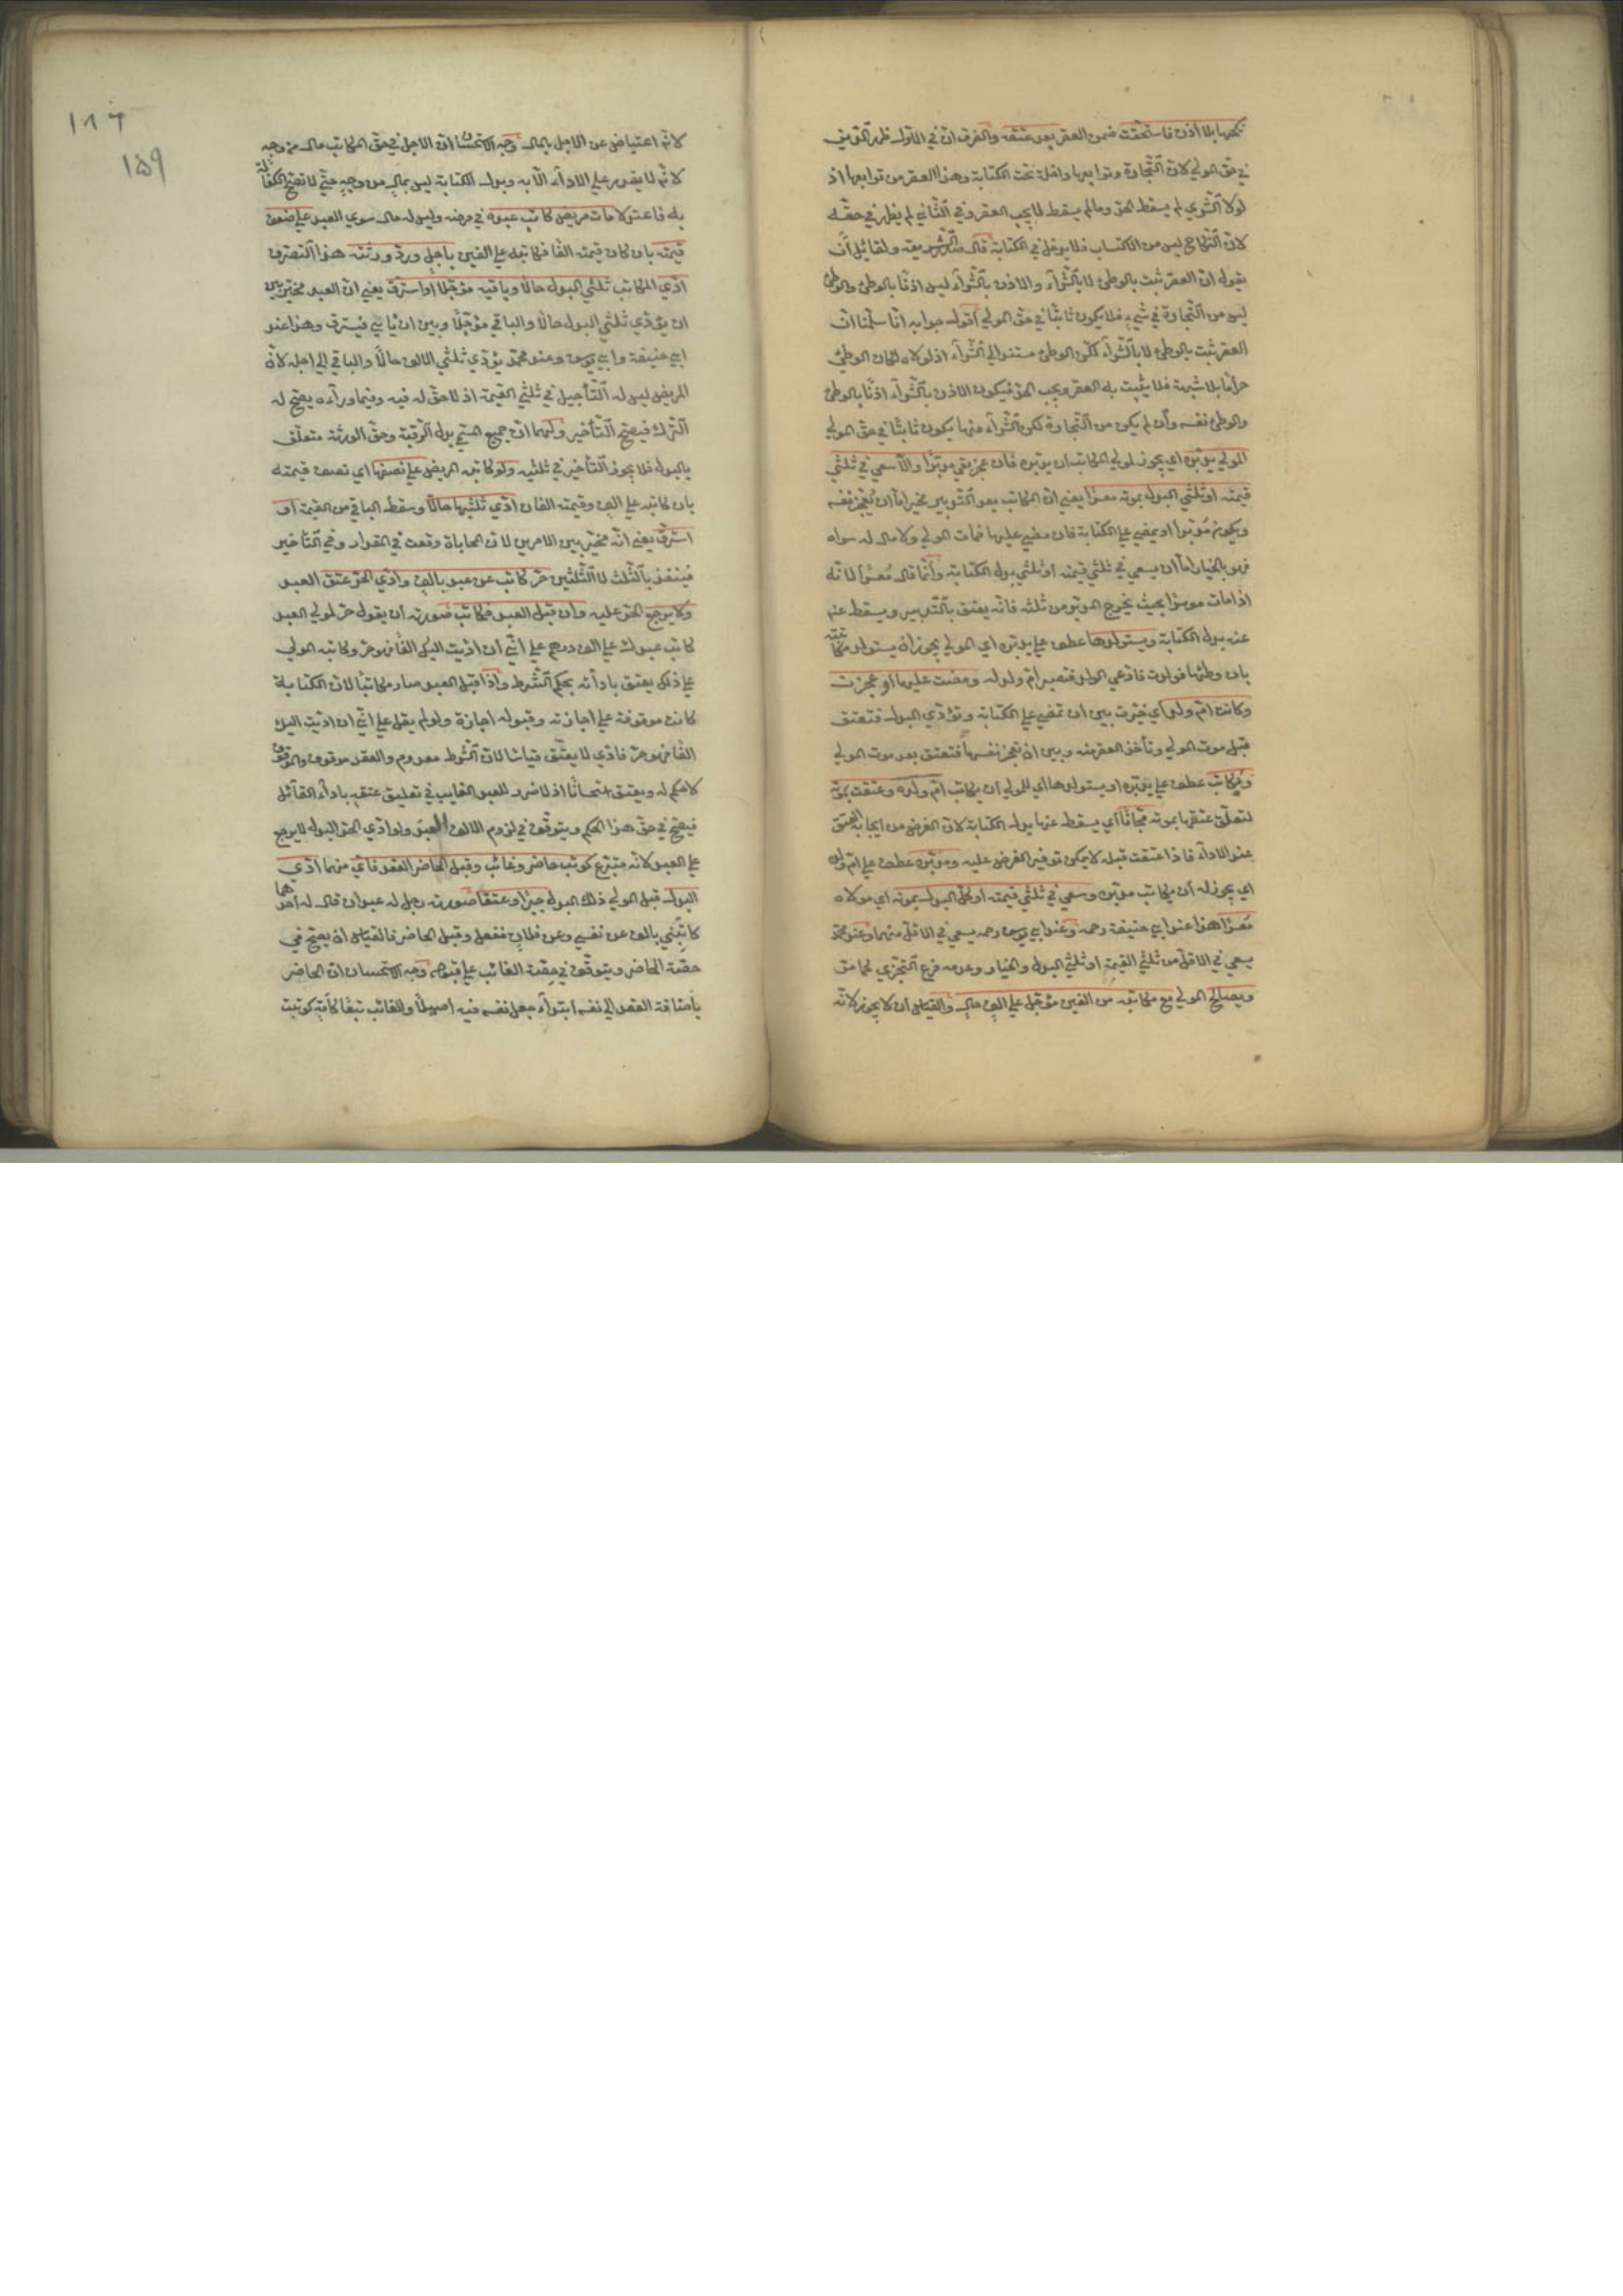 نكحها بلا اذن فاستحقت ضمن العقر بعد عتقه والفرق ان في الاول ظهر
في حق المولي لان التجارة وتوابعها داخلة تحت الكتابة وهذا العقر من توابعها اذ
لولا الشري لم يسقط الحد وما لم يسقط لا يجب العقر وفي الثاني لم يظهر في حقه
لان النكاح ليس من الاكتساب فلا يدخل في الكتابة قال صدر الشريعة ولقائل أن
يقول ان العقر ثبت بالوطئ لا بالشراء والاذن بالشراء ليس اذنا بالوطئ والوطئ
ليس من التجارة في شيء فلا يكون ثابتا في حق المولي أقول جوابه انا سلمنا ان
العقر ثبت بالوطئ لا بالشراء لكن الوطئ مستند الي الشراء اذ لولاه لكان الوطئ
حراما بلا شبهة فلا يثبت به العقر ويجب الحد فيكون الاذن بالشراء اذنا بالوطئ
والوطئ نفسه وأن لم يكن من التجارة لكن الشراء منها يكون ثابتا في حق المولي
المولي يدبره اي يجوز لمولي المكاتب ان يدبره فان عجز بقي مدبرا والا سعي في ثلثي
قيمته او ثلثي البدل بموته معسرا يعني ان المكاتب بعد التدبير مخير اما ان يعجز نفسه
ويكون مدبرا او يمضي علي الكتابة فان مضي عليها فمات المولي ولا مال له سواه
فهو بالخيار اما أن يسعي في ثلثي قيمته او ثلثي بدل الكتابة وأنما قال معسرا لانه
اذا مات موسرا بحيث يخرج المدبر من ثلثه فانه يعتق بالتدبير ويسقط عنه
عنه بدل الكتابة ويستولدها عطف علي يدبره اي المولي يجوز أن يستولد مكاتبته
بان وطئها فولدت فادعي الولد فتصير ام ولد له ومضت عليها او عجزت
وكانت ام ولد أي خيرت بين ان تمضي علي الكتابة وتؤدي البدل فتعتق
قبل موت المولي وتأخذ العقر منه وبين ان تعجز نفسها فتعتق بعد موت المولي
ويكاتب عطف علي يدبره او يستولدها اي للمولي أن يكاتب ام ولده وعتقت بموته
لتعلق عتقها بموته مجانا أي يسقط عنها بدل الكتابة لان الغرض من ايجابه العتق
عند الاداء فاذا عتقت قبله لا يمكن توفير الغرض عليه ومدبره عطف علي ام ولده
اي يجوز له أن يكاتب مدبره وسعي في ثلثي قيمته او كل البدل بموته اي مولاه
معسرا هذا عند ابي حنيفة رحمه وعند ابي يوسف رحمه يسعي في الاقل منهما وعند محمد
يسعي في الاقل من ثلثي القيمة او ثلثي البدل والخيار وعدمه فرع التجزي كما مر
ويصالح المولي مع مكاتبه من الفين مؤجل علي الف حال والقياس أن لا يجوز لانه
لانه اعتياض عن الاجل بالمال وجه الاستحسان ان الاجل في حق المكاتب مال من وجه
لانه لا يقدر علي الاداء الا به وبدل الكتابة ليس بمال من وجه حتي لا تصح الكفالة
به فاعتدلا مات مريض كاتب عبده في مرضه وليس له مال سوي العبد علي ضعف
قيمته بان كان قيمته الفا فكاتبه علي الفين باجل ورد ورثته هذا التصرف
ادي المكاتب ثلثي البدل حالا وباقيه مؤجلا او استرق يعني ان العبد مخير بين
ان يؤدي ثلثي البدل حالا والباقي مؤجلا وبين ان يأبي فيسترق وهذا عند
ابي حنيفة وابي يوسف وعند محمد يؤدي ثلثي الالف حالا والباقي الي اجله لان
المريض ليس له التأجيل في ثلثي القيمة اذ لا حق له فيه وفيما وراءه يصح له
الترك فيصح التأخير ولهما ان جميع المسمي بدل الرقبة وحق الورثة متعلق
بالبدل فلا يجوز التأخير في ثلثيه ولو كاتبه المريض علي نصفها اي نصف قيمته
بان كاتبه علي الف وقيمته الفان ادي ثلثيها حالا وسقط الباقي من القيمة او
استرق يعني انه مخير بين الامرين لان المحاباة وقعت في المقدار وفي التأخير
فينفذ بالثلث لا الثلثين حر كاتب عن عبد بالف وادي الحر عتق العبد
ولا يرجع الحر عليه وان قبل العبد فمكاتب صورته أن يقول حر لمولي العبد
كاتب عبدك علي الف درهم علي اني أن اديت اليك الفا فهو حر وكاتبه المولي
علي ذلك يعتق بادائه بحكم الشرط واذا قبل العبد صار مكاتبا لان الكتابة
كانت موقوفة علي اجازته وقبوله اجازة ولو لم يقل علي اني ان اديت اليك
الفا فهو حر فادي لا يعتق قياسا لان الشرط معدوم والعقد موقوف والموقوف
لا حكم له ويعتق استحسانا اذ لا ضرر للعبد الغايب في تعليق عتقه باداء القائل
فيصح في حق هذا الحكم ويتوقف في لزوم الالف العبد ولو ادي الحر البدل لا يرجع
علي العبد لانه متبرع كوتب حاضر وغائب وقبل الحاضر العقد فاي منهما ادي
البدل قبل المولي ذلك البدل جبرا وعتقا صورته رجل له عبدان قال له احدهما
كاتبني بالف عن نفسي وعن فلان ففعل وقبل الحاضر فالقياس ان يصح في
حصة الحاضر ويتوقف في حصة الغائب علي قبوله وجه الاستحسان ان الحاضر
باضافة العقد الي نفسه ابتداء جعل نفسه فيه اصيلا والغائب تبعا كأمة كوتبت
١٨٦
١٥٩